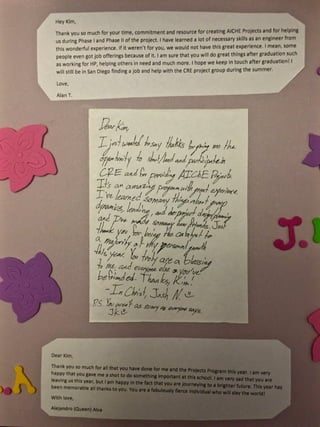 Hey Kim,
Thank you so much for your time, commitment and resource for creating AIChE Projects and for helping
us during Phase I and Phase II of the project. I have learned a lot of necessary skills as an engineer from
this wonderful experience. If it weren't for you, we would not have this great experience. I mean, some
people even got job offerings because of it. I am sure that you will do great things after graduation such
as working for HP, helping others in need and much more. I hope we keep in touch after graduation! I
will still be in San Diego finding a job and help with the CRE project group during the summer.
Love,
Alan T.
Dear Kim,
I just wanted to say thanks for giving me the
opportunity to start/lead and participate in
CRE and for providing AIChE Projects
It's an amazing program with great experience
I've learned so many things about group
dynamics, leading, and project design/planning
and I've made so many new friends. Just
thank you for being the catalyst to
a majority of my personal growth
this year. You truly are a blessing
to me and everyone else you've
befriended. Thanks, Kim!
- In Christ, Josh N.
P.S. You aren't as scary as everyone says.
JK
J.
A
Dear Kim,
Thank you so much for all that you have done for me and the Projects Program this year. I am very
happy that you gave me a shot to do something important at this school. I am very sad that you are
leaving us this year, but I am happy in the fact that you are journeying to a brighter future. This year has
been memorable all thanks to you. You are a fabulously fierce individual who will slay the world!
With love,
Alejandro (Queen) Alva